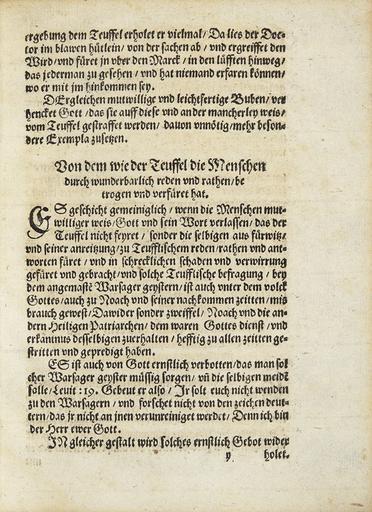 ergebung dem Teuffel erholet er vielmal / Da lies der Doc-
tor im blawen hütlein / von der sachen ab / vnd ergreiffet den
Wird / vnd füret jn vber den Marck / in den lüfften hinweg /
das jederman zu gesehen / vnd hat niemand erfaren können /
wo er mit jm hinkommen sey.
DErgleichen mutwillige vnd leichtfertige Buben / ver
hencket Gott / das sie auff diese vnd ander mancherley weis /
vom Teuffel gestraffet werden / dauon vnnötig / mehr beson-
dere Exempla zusetzen.
Von dem wie der Teuffel die Menschen
durch wunderbarlich reden vnd rathen / be
trogen vnd verfüret hat.
ES geschicht gemeiniglich / wenn die Menschen mut-
williger weis / Gott vnd sein Wort verlassen / das der
Teuffel nicht feyret / sonder die selbigen aus fürwitz /
vnd seiner anreitzung / zu Teufflischem reden / rathen vnd ant-
worten füret / vnd in schrecklichen schaden vnd verwirrung
gefüret vnd gebracht / vnd solche Teufflische befragung / bey
dem angemasté Warsager geystern / ist auch vnter dem volck
Gottes / auch zu Noach vnd seiner nachkommen zeitten / mis
brauch gewest / Dawider sonder zweiffel / Noach vnd die an-
dern Heiligen Patriarchen / dem waren Gottes dienst / vnd
erkantnus desselbigen zuerhalten / hefftig zu allen zeitten ge-
stritten vnd gepredigt haben.
ES ist auch von Gott ernstlich verbotten / das man sol
cher Warsager geyster müssig sorgen / vñ die selbigen meidé
solle / Leuit : 19. Gebeut er also / Jr solt euch nicht wenden
zu den Warsagern / vnd forschet nicht von den zeichen deut-
tern / das jr nicht an jnen verunreiniget werdet / Denn ich bin
der Herr ewer Gott.
JN gleicher gestalt wird solches ernstlich Gebot wider
y holet.